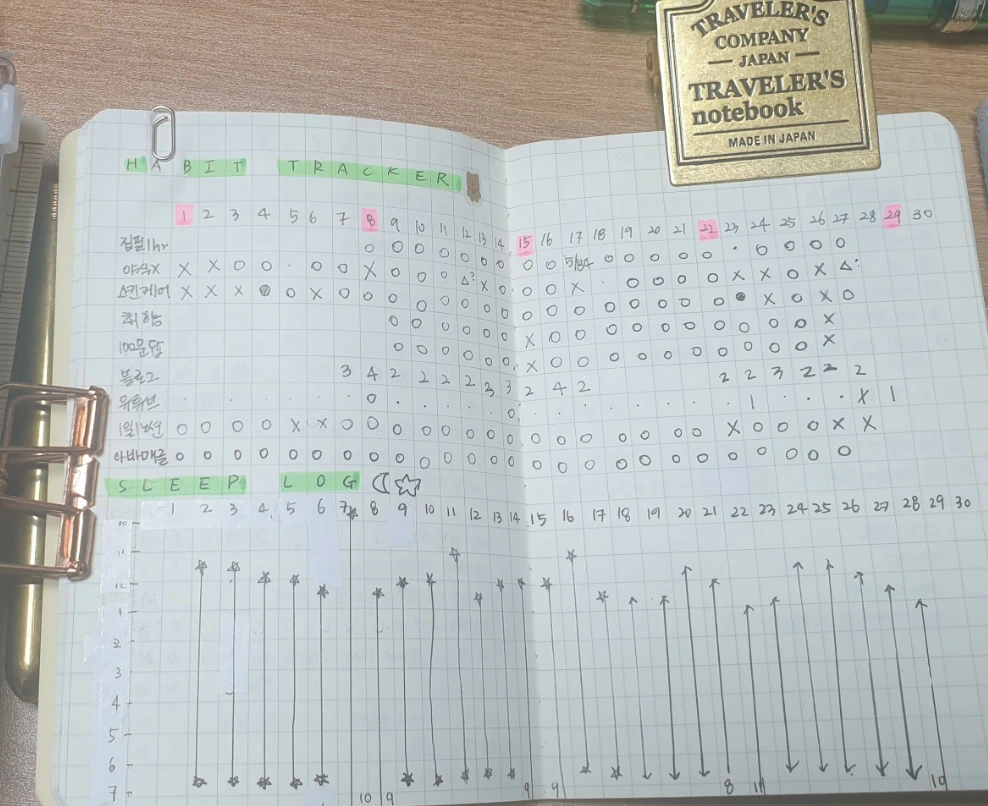 TRAVELER'S
COMPANY
JAPAN
TRAVELER'S
notebook
MADE IN JAPAN
HABIT TRACKER
1 2 3 4 5 6 7 8 9 10 11 12 13 14 15 16 17 18 19 20 21 22 23 24 25 26 27 28 29 30
집필1hr O O O O O O O O 5/84 O O O O O · O O O O
야식X X X O O · O O X O O O △? X O O O X · O O O O X X O X △?
스킨케어 X X X ● O X O O O O O O O O O O O O O O O O ● X O X O
취함 O O O O O O X O O O O O O O O O O O X
100문답 O O O O O O X O O O O O O O O O O O X
블로그 3 4 2 2 2 2 3 3 2 4 2 2 2 3 2 2 2
유튜브 · · · · · · · O · · · · · O · · · · · · · · 1 · · · X 1
O O O O X X O O O O O O O O O O O O O O O X O O O X X
O O O O O O O O O O O O O O O O O O O O O O O O O O
SLEEP LOG
1 2 3 4 5 6 7 8 9 10 11 12 13 14 15 16 17 18 19 20 21 22 23 24 25 26 27 28 29 30
10
11
12
1
2
3
4
5
6
7
10 9 9 9 8 11 10